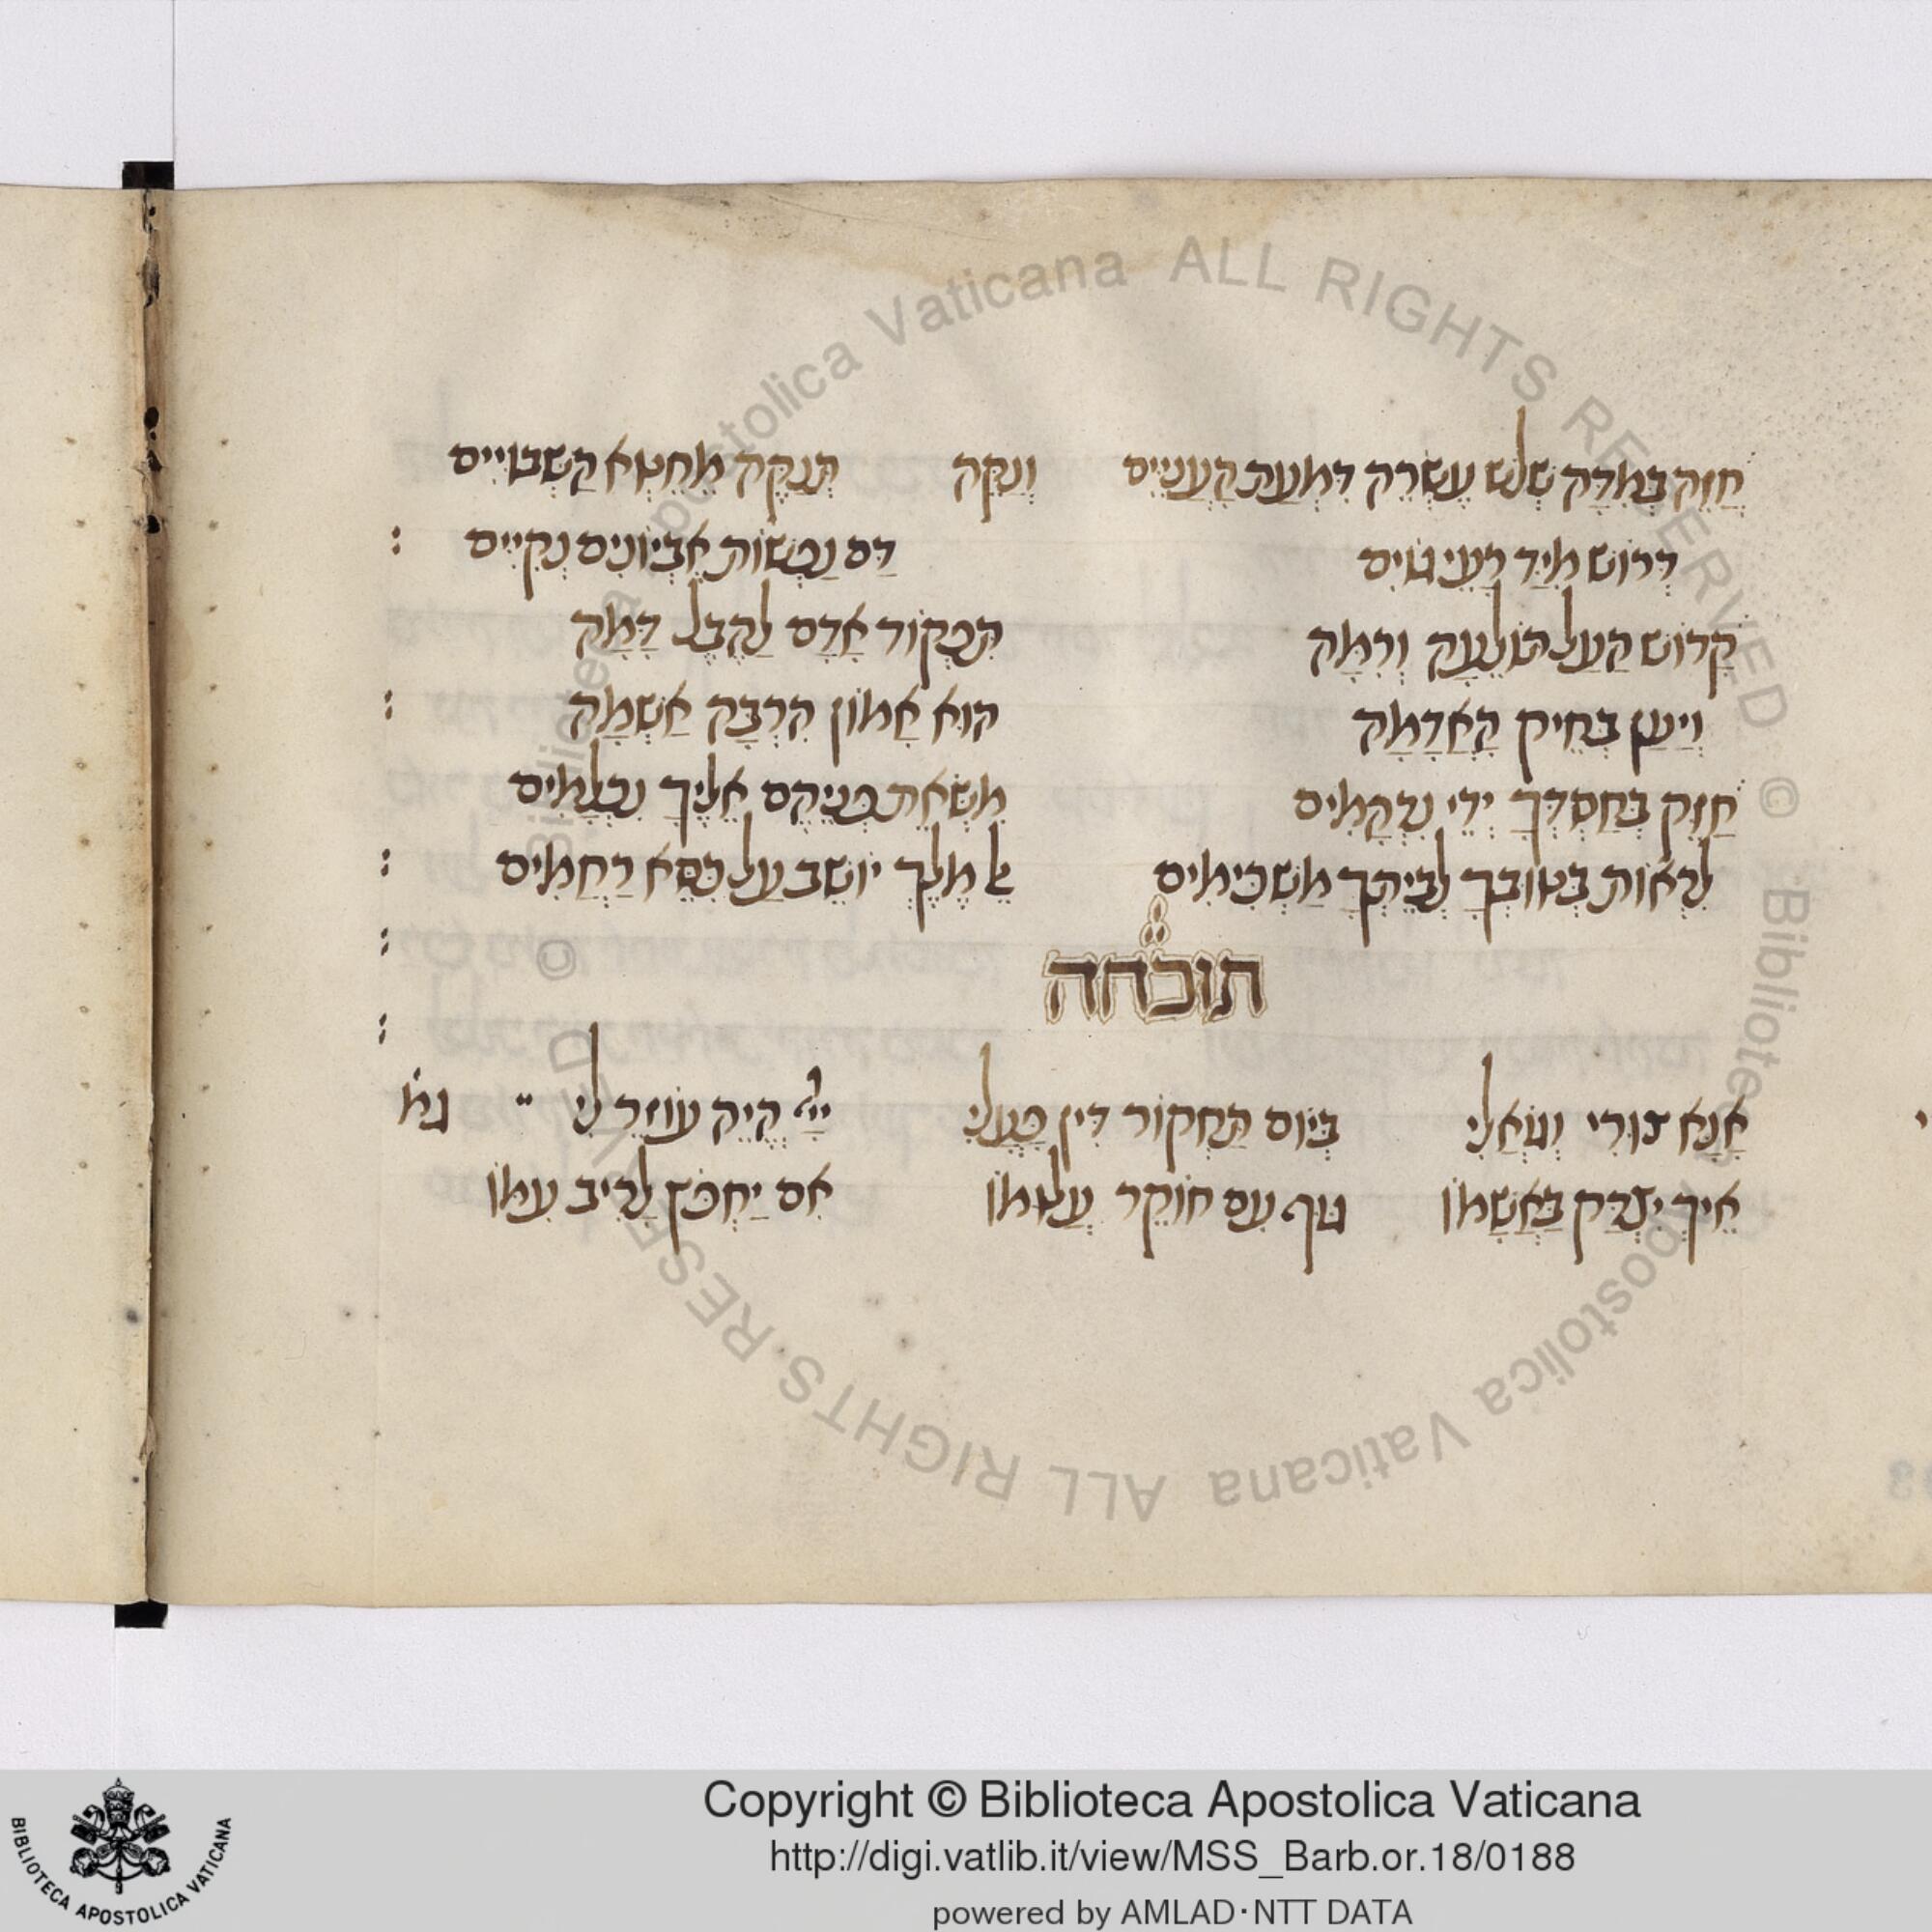 חזה במדה שלש עשרה דמעת העניים ונקה תנקה מחטא השבויים
דרוש מיד רעי גוים דם נפשות אביונים נקיים :
העל תולעה ורמה תפקוד אדם להבל דמה
בחיק האדמה הוא הרבה אשמה :
חזק בחסדך ידי נדהמים משאת פניהם אליך נכלמים
לראות בטובך לביתך משכימים אל מלך יושב על כסא רחמים :
תוכחה
אנא צורי וגואלי ביום תחקור דין פעלי ייי היה עוזר לי
איך יצדק באשמו גוף עם חוקר עלומו אם יחפץ לריב עמו
Biblioteca Apostolica Vaticana ALL RIGHTS RESERVED © Biblioteca Apostolica Vaticana ALL RIGHTS RESERVED ©
BIBLIOTECA APOSTOLICA VATICANA
Copyright © Biblioteca Apostolica Vaticana
http://digi.vatlib.it/view/MSS_Barb.or.18/0188
powered by AMLAD·NTT DATA